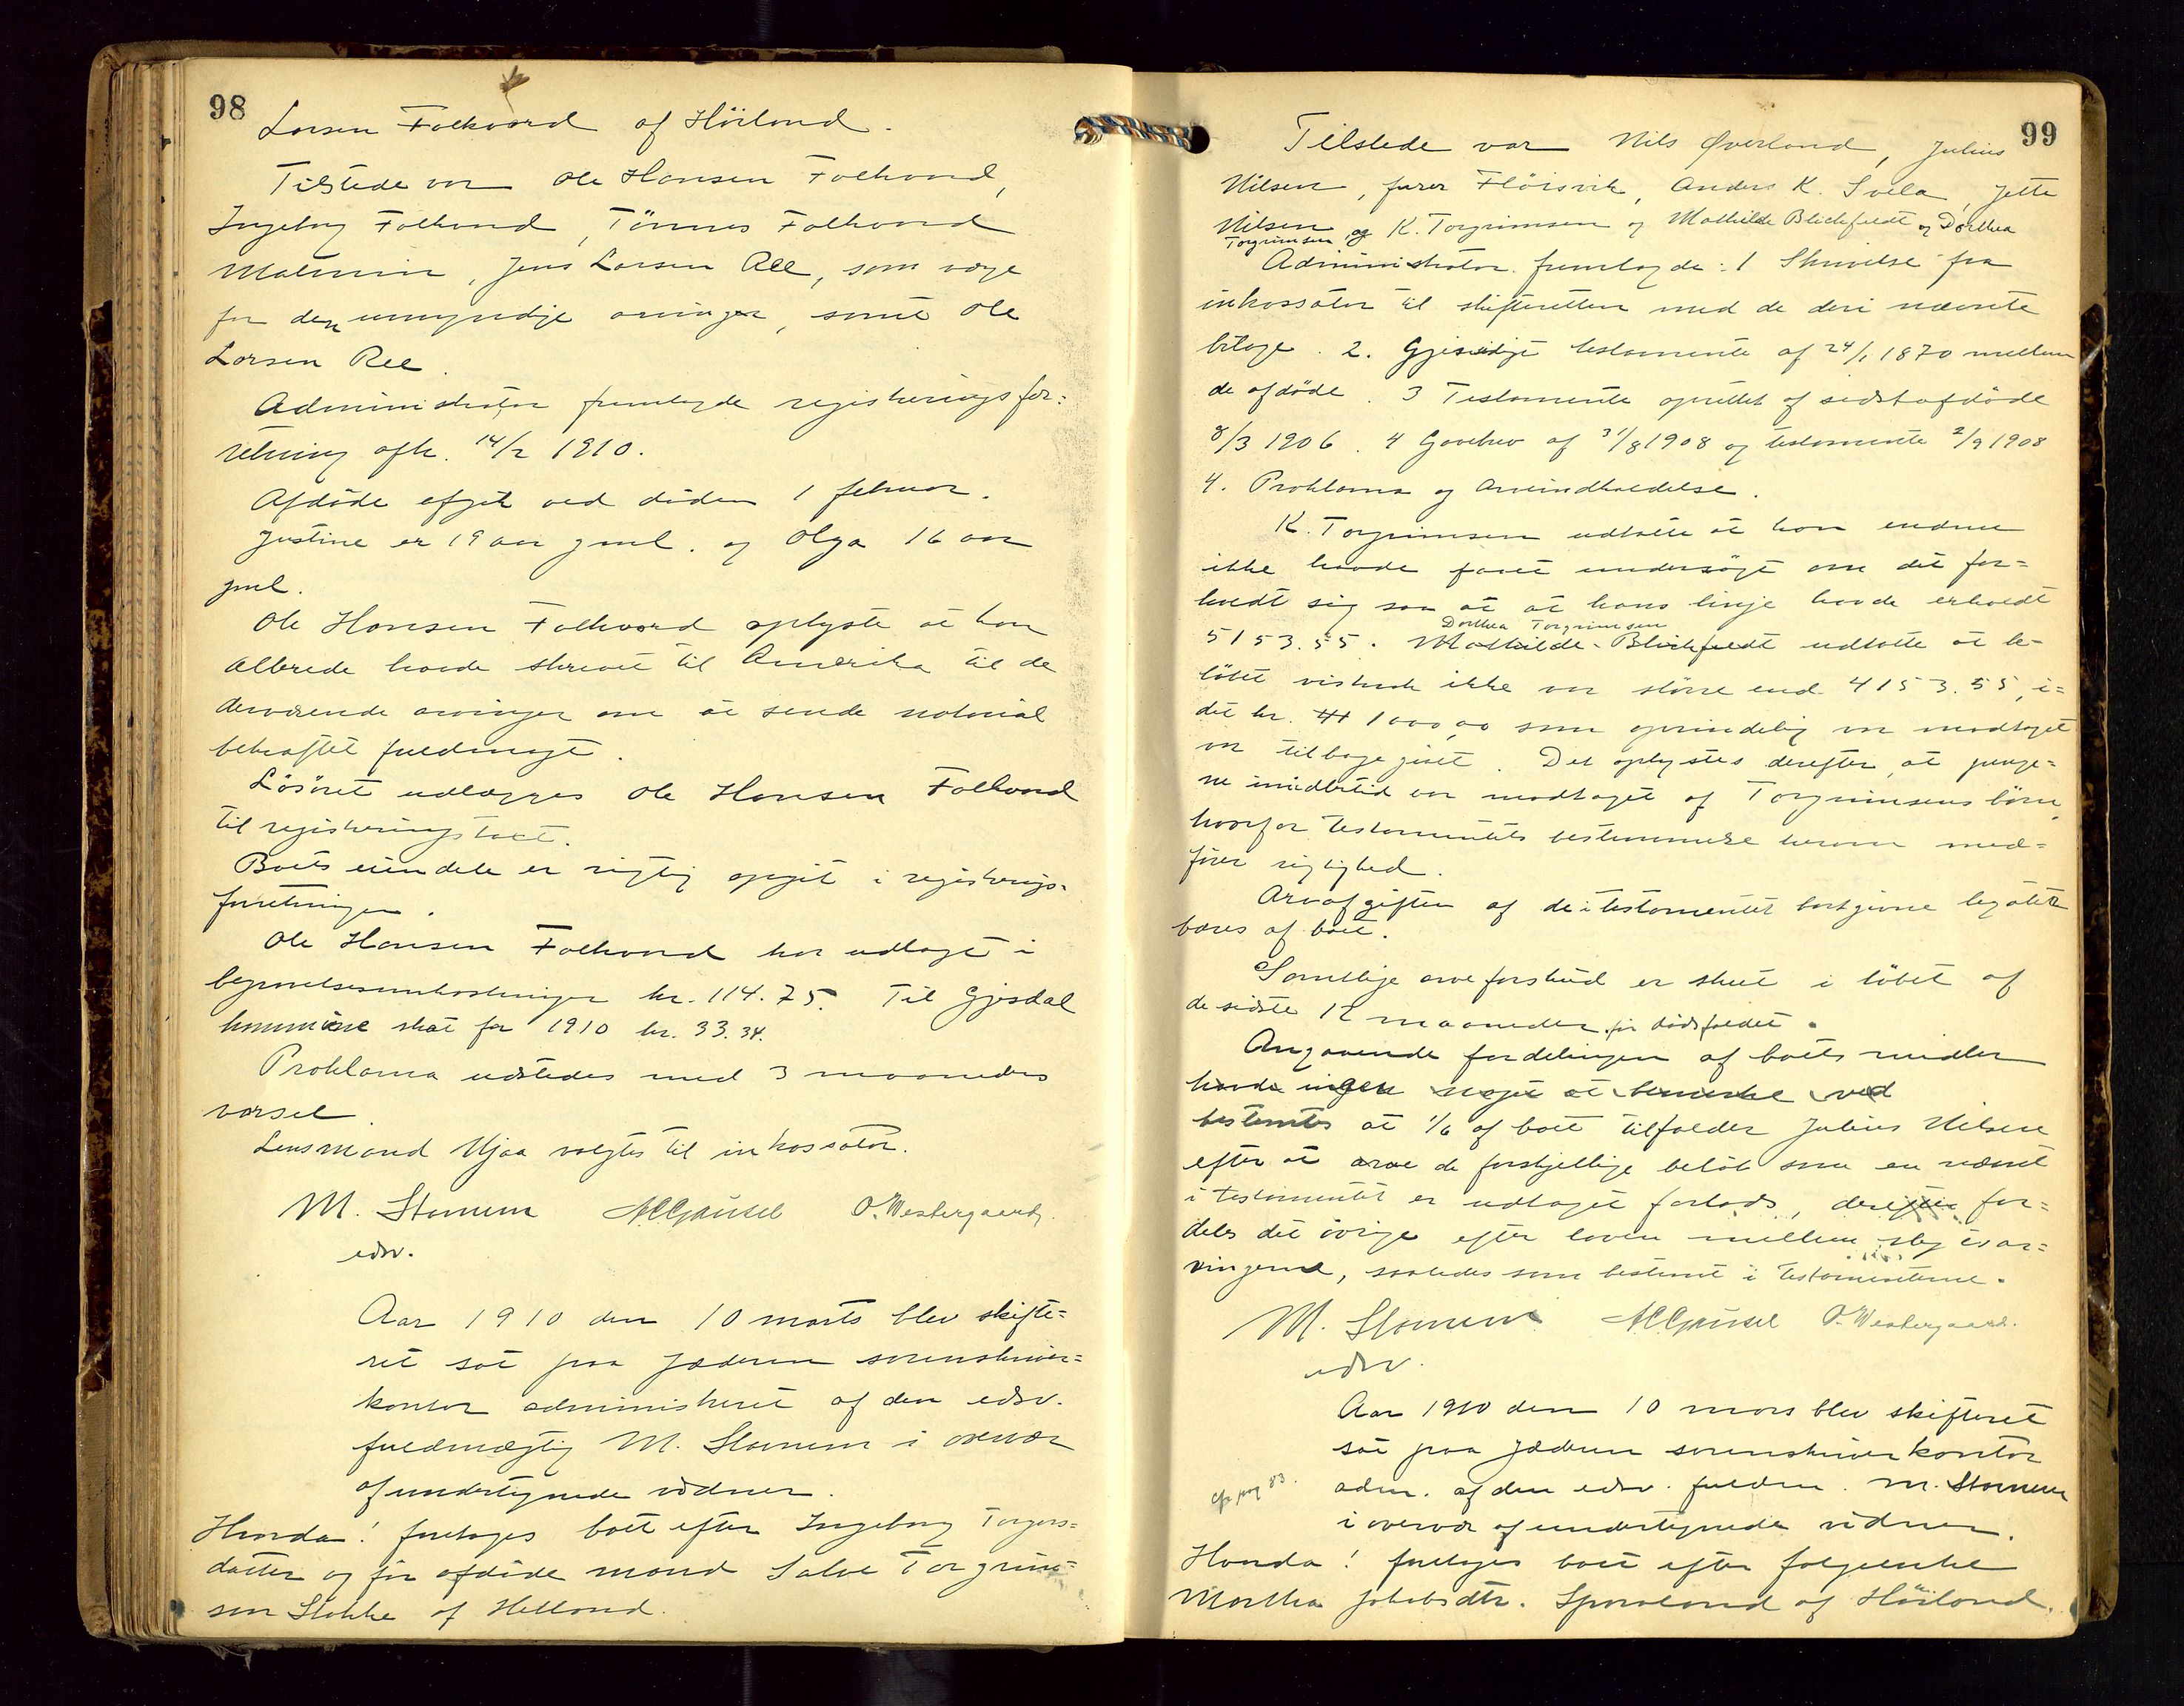 98
Larsen Folkvord af Höiland.
Tilstede var Ole Hansen Folkvord,
Ingeborg Folkvord, Tönnes Folkvord
Malmin, Jens Larsen Ree, som verge
for den umyndige arvinger, samt Ole
Larsen Ree.
Administrator fremlagde registreringsfor=
retning afh. 14/2 1910.
Afdöde afgik ved döden 1 februar.
Justine er 19 aar gml. og Olga 16 aar
gml.
Ole Hansen Folkvord oplyste at han
allerede havde skrevet til Amerika til de
derværende arvinger om at sende notorial
bekræftet fuldmagt.
Lösöret udlægges Ole Hansen Folkvord
til registreringstakst.
Boets eiendele er rigtig opgit i registrerings-
forretningen.
Ole Hansen Folkvord har udlagt i
begravelsesomkostninger kr. 114.75. Til Gjesdal
kommune skat for 1910 kr. 33.34.
Proklama udstedes med 3 maaneders
varsel.
Lensmand Ujaa valgtes til inkassator.
M. Stomem A C Gausel O. Westergaard.
edsv.
Aar 1910 den 10 marts blev skifte=
ret sat paa Jæderen sorenskriver=
kontor administreret af den edsv.
fuldmægtig M. Stomem i overvær
af undertegnede vidner.
Hvorda! foretages boet efter Ingeborg Torgers=
datter og för afdöde mand Salve Torgrim=
sen Stokke af Hetland.
99
Tilstede var Nils Øverland, Julius
Nilsen, furer Flörsvik, Anders K. Svela, Jette
Nilsen, og K. Torgrimsen og Mathilde Blichfeldt og Dorthea
Torgrimsen
Administrator fremlagde: 1 Skrivelse fra
inkassator til skifteretten med de deri nævnte
bilage. 2. Gjensidigt testamente af 24/1 1870 mellem
de afdöde. 3 Testamente oprettet af sidstafdöde
8/3 1906. 4 Gavebrev af 31/8 1908 og testamente 2/9 1908
4. Proklama og arveindkaldelse.
K. Torgrimsen udtalte at han endnu
ikke havde faaet undersögt om det for=
holdt sig saa at at hans linje havde erholdt
Dorthea Torgrimsen
5153.55. Mathilde Blichfeldt udtalte at be-
löbet vistnok ikke var större end 4153.55, i=
det kr. 1000,00 som oprindelig var modtaget
var tilbagegivet. Det oplystes derefter, at penge=
ne imidlertid var modtaget af Torgrimsens börn,
hvorfor testamentets bestemmelse herom med=
förer rigtighed.
Arveafgiften af de i testamentet bortgivne legater
bæres af boet.
Samtlige arveforskud er skeet i löbet af
de sidste 12 maaneder för dödsfaldet.
Angaaende fordelingen af boets midler
havde ingen noget at bemerke ved
bestemtes at 1/6 af boet tilfalder Julius Nilsen
efter at arve de forskjellige belöb som en nævnt
i testamentet er udtaget forlods, derefter for=
deles det övrige efter loven mellem slegtsar=
vingerne, saaledes som bestemt i testamenterne.
M. Stomem A C Gausel O. Westergaard.
edsv.
Aar 1910 den 10 mars blev skifteret
sat paa Jæderen sorenskriverkontor
cfr pag 83.
adm. af den edsv. fuldm. M. Stomem
i overvær af undertegnede vidner.
Hvorda! foretages boet efter folgeenke
Martha Jakobsdtr. Sporaland af Höiland.